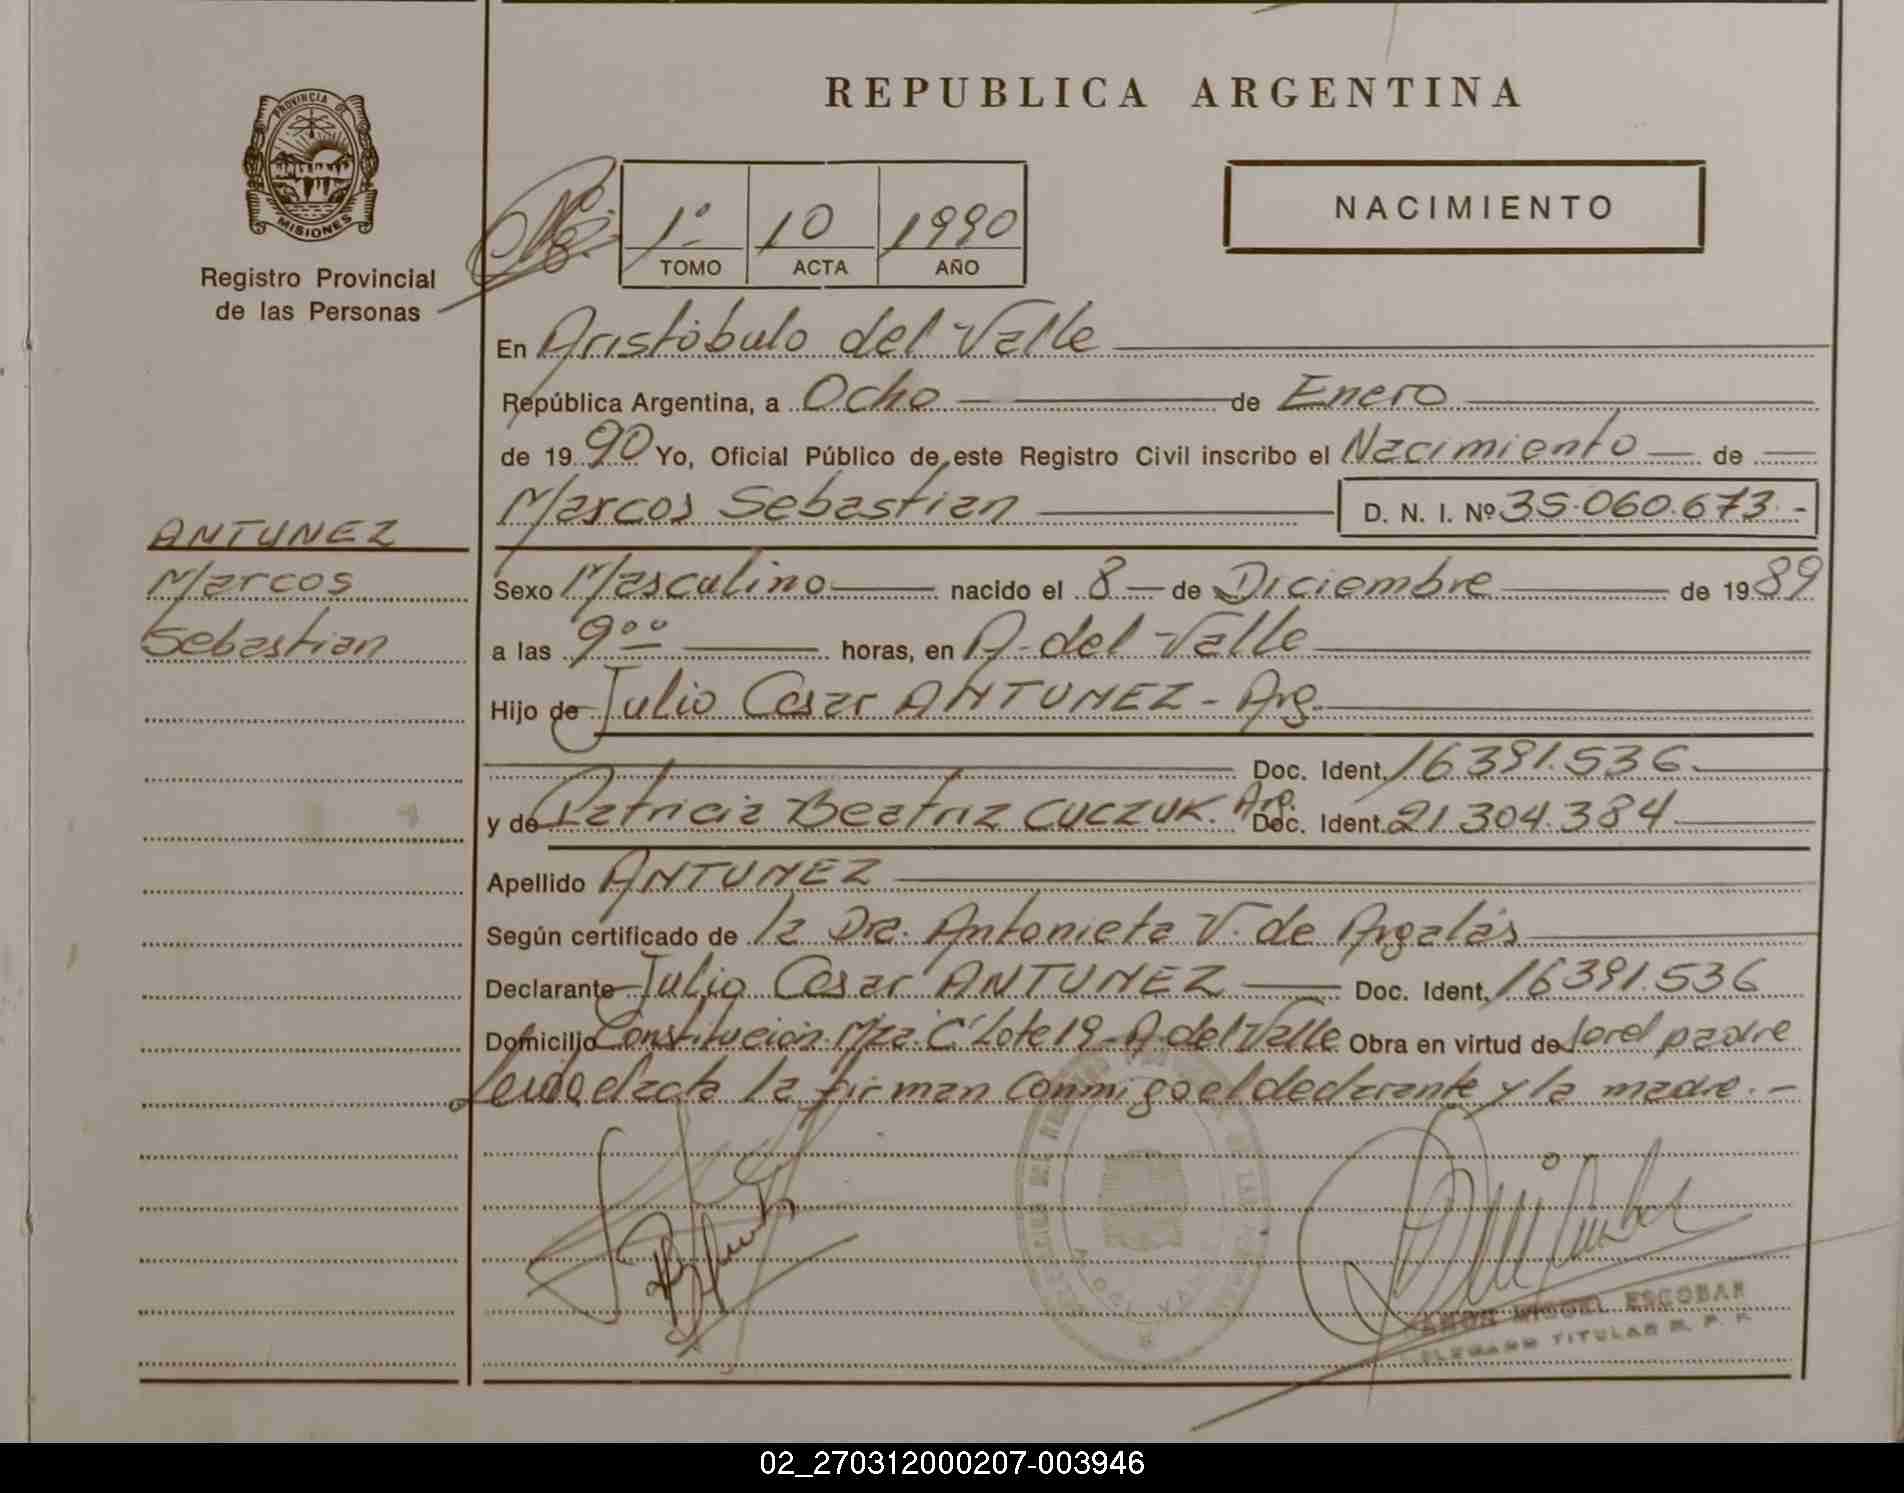 REPUBLICA ARGENTINA
PROVINCIA DE
MISIONES
Registro Provincial
de las Personas
1º 10 1990
TOMO ACTA AÑO
NACIMIENTO
En Aristóbulo del Valle
República Argentina, a Ocho de Enero
de 1990 Yo, Oficial Público de este Registro Civil inscribo el Nacimiento de
Marcos Sebastian D. N. I. Nº 35.060.673.-
ANTUNEZ
Marcos
Sebastian
Sexo Masculino nacido el 8 de Diciembre de 1989
a las 9⁰⁰ horas, en A. del Valle
Hijo de Julio Cesar ANTUNEZ - Arg.
Doc. Ident. 16391.536.
y de Patricia Beatriz CUCZUK. Arg. Doc. Ident. 21.304.384
Apellido ANTUNEZ
Según certificado de la Dra. Antonieta V. de Argalás
Declarante Julio Cesar ANTUNEZ Doc. Ident. 16391.536
Domicilio Constitución Mza. "C" Lote 19 - A. del Valle Obra en virtud de ser el padre
Leida el acta la firman conmigo el declarante y la madre.-
MIGUEL ESCOBAR
TITULAR R. P. P.
02_270312000207-003946